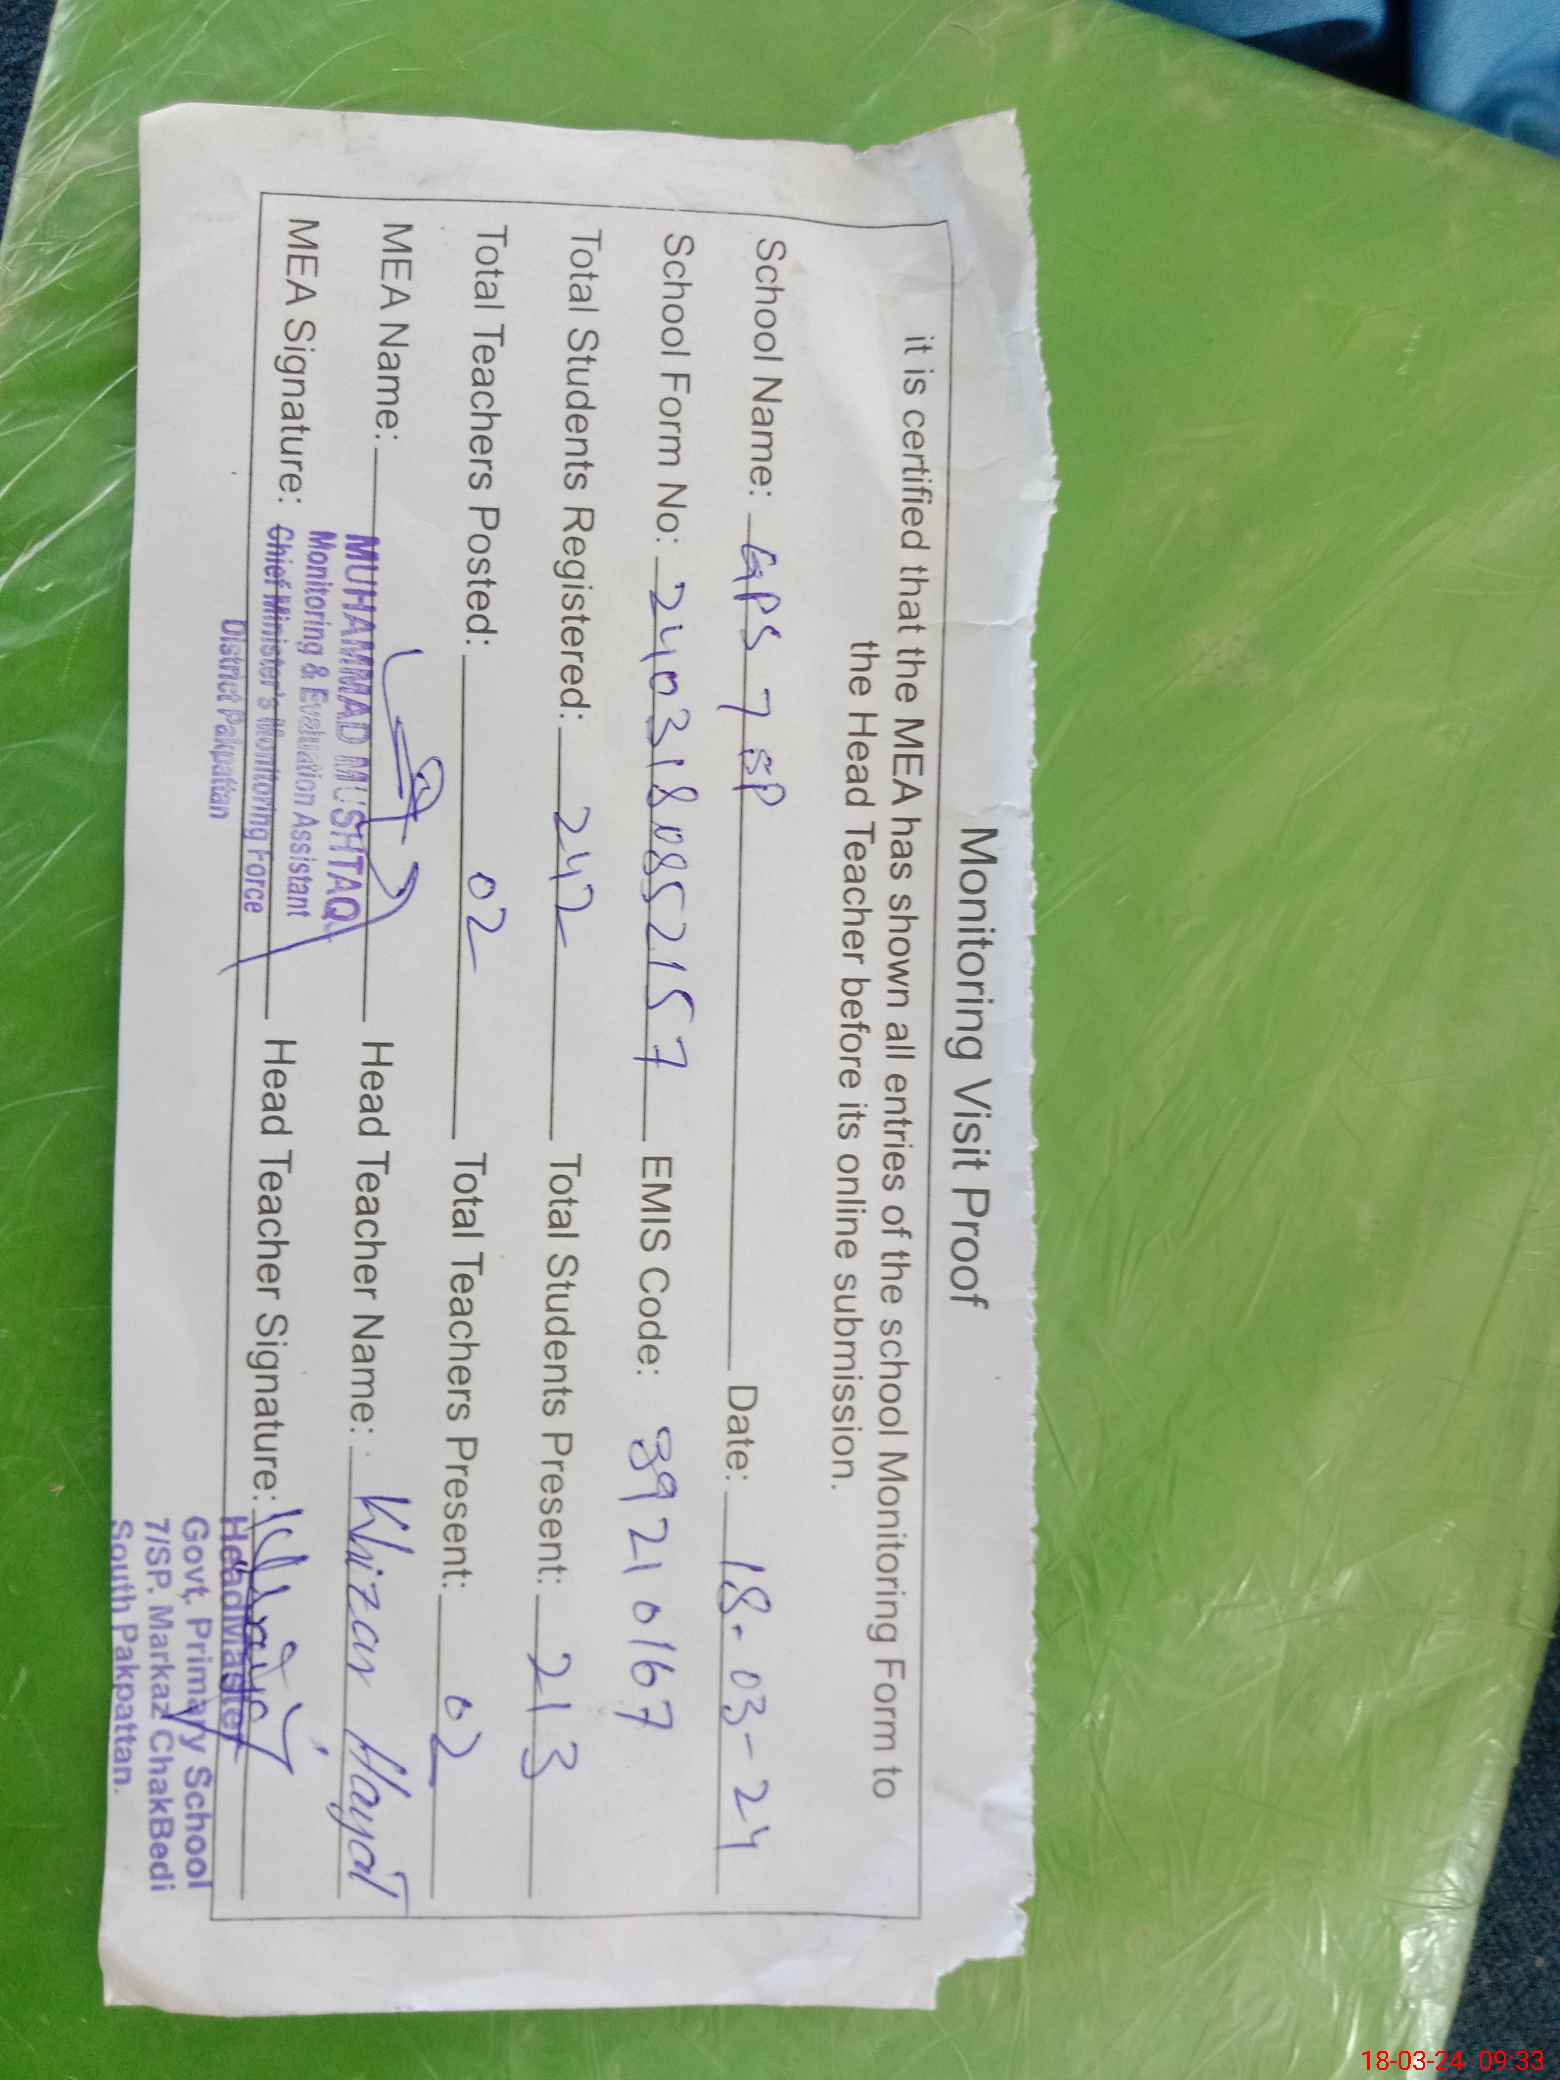 Monitoring Visit Proof
it is certified that the MEA has shown all entries of the school Monitoring Form to
the Head Teacher before its online submission.
School Name: GPS 7 SP Date: 18-03-24
School Form No: 2403180852157 EMIS Code: 39210167
Total Students Registered: 242 Total Students Present: 213
Total Teachers Posted: 02 Total Teachers Present: 02
MEA Name: Head Teacher Name: Khizar Hayat
MUHAMMAD MUSHTAQ
Monitoring & Evaluation Assistant
MEA Signature: Head Teacher Signature:
Chief Minister's Monitoring Force
District Pakpattan
HeadMaster
Govt. Primary School
7/SP. Markaz ChakBedi
South Pakpattan.
18-03-24 09:33